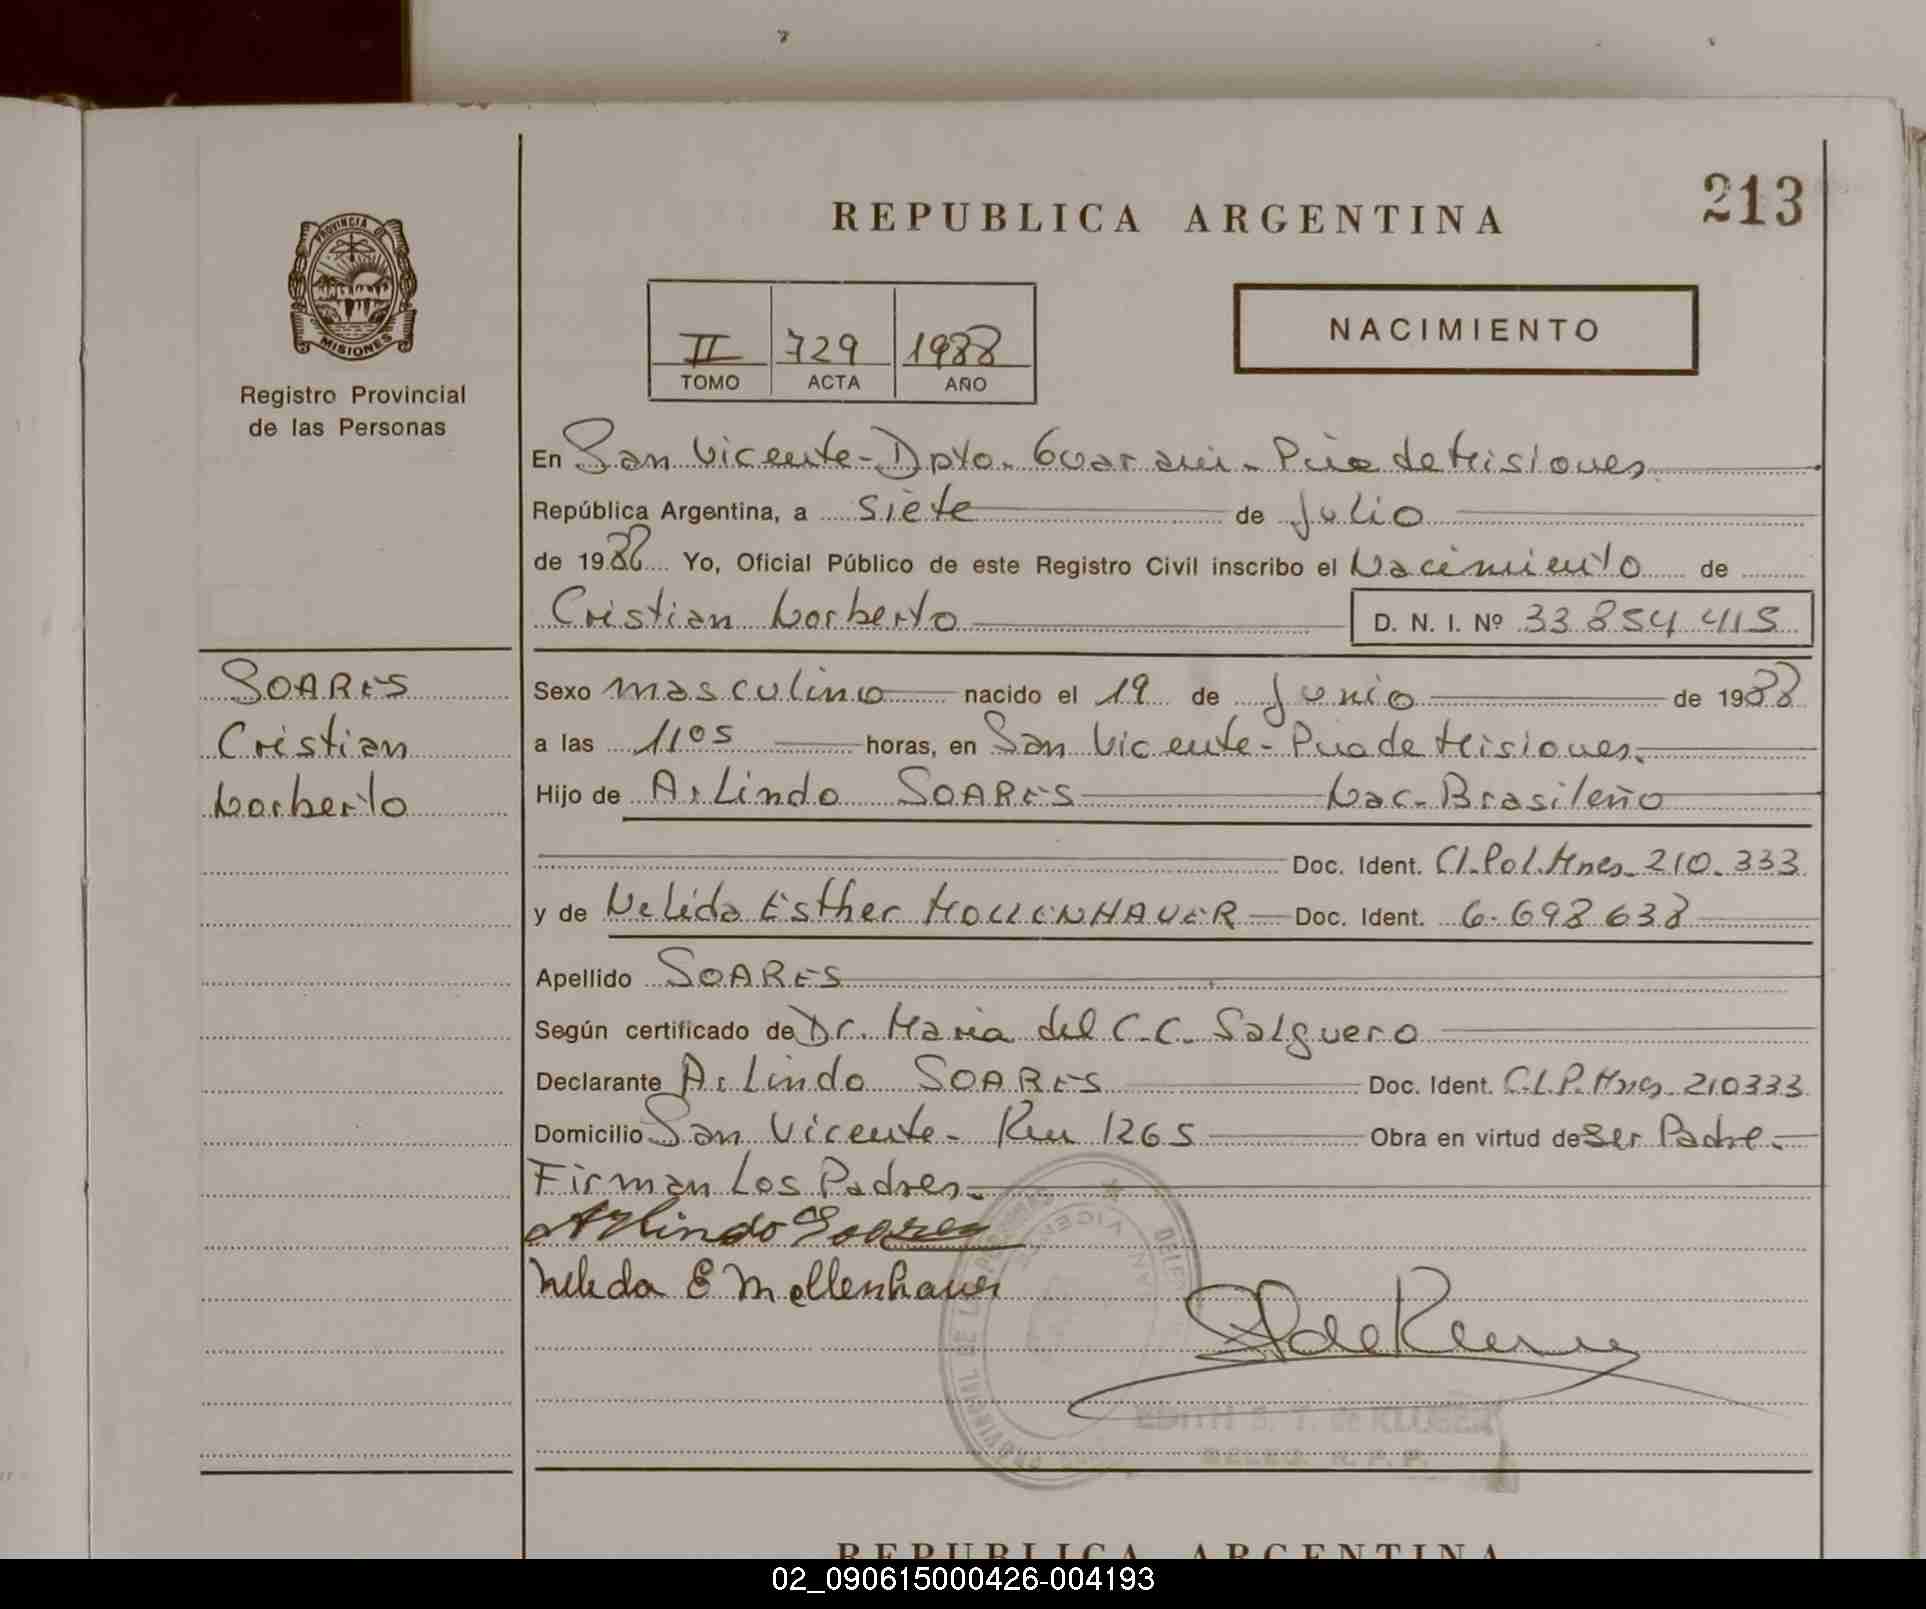 213
REPUBLICA ARGENTINA
PROVINCIA DE
MISIONES
Registro Provincial
de las Personas
II 729 1988
TOMO ACTA AÑO
NACIMIENTO
En San Vicente - Dpto. Guarani - Pcia de Misiones
República Argentina, a siete de Julio
de 1988 Yo, Oficial Público de este Registro Civil inscribo el Nacimiento de
Cristian Norberto D. N. I. Nº 33 854 415
SOARES
Cristian
Norberto
Sexo masculino nacido el 19 de Junio de 1988
a las 11 05 horas, en San Vicente - Pcia de Misiones.
Hijo de Arlindo SOARES Nac - Brasileño
Doc. Ident. CI. Pol. Mnes - 210.333
y de Nelida Esther MOLLENHAUER Doc. Ident. 6.698638
Apellido SOARES
Según certificado de Dr. Maria del C.C. Salguero
Declarante Arlindo SOARES Doc. Ident. C.I.P. Mnes 210333
Domicilio San Vicente - Km 1265 Obra en virtud de ser Padre -
Firman Los Padres -
Arlindo Soares
Nelida E Mollenhauer
EDITH S. T. de KLUBER
DELEG. R. P. P.
REPUBLICA ARGENTINA
02_090615000426-004193